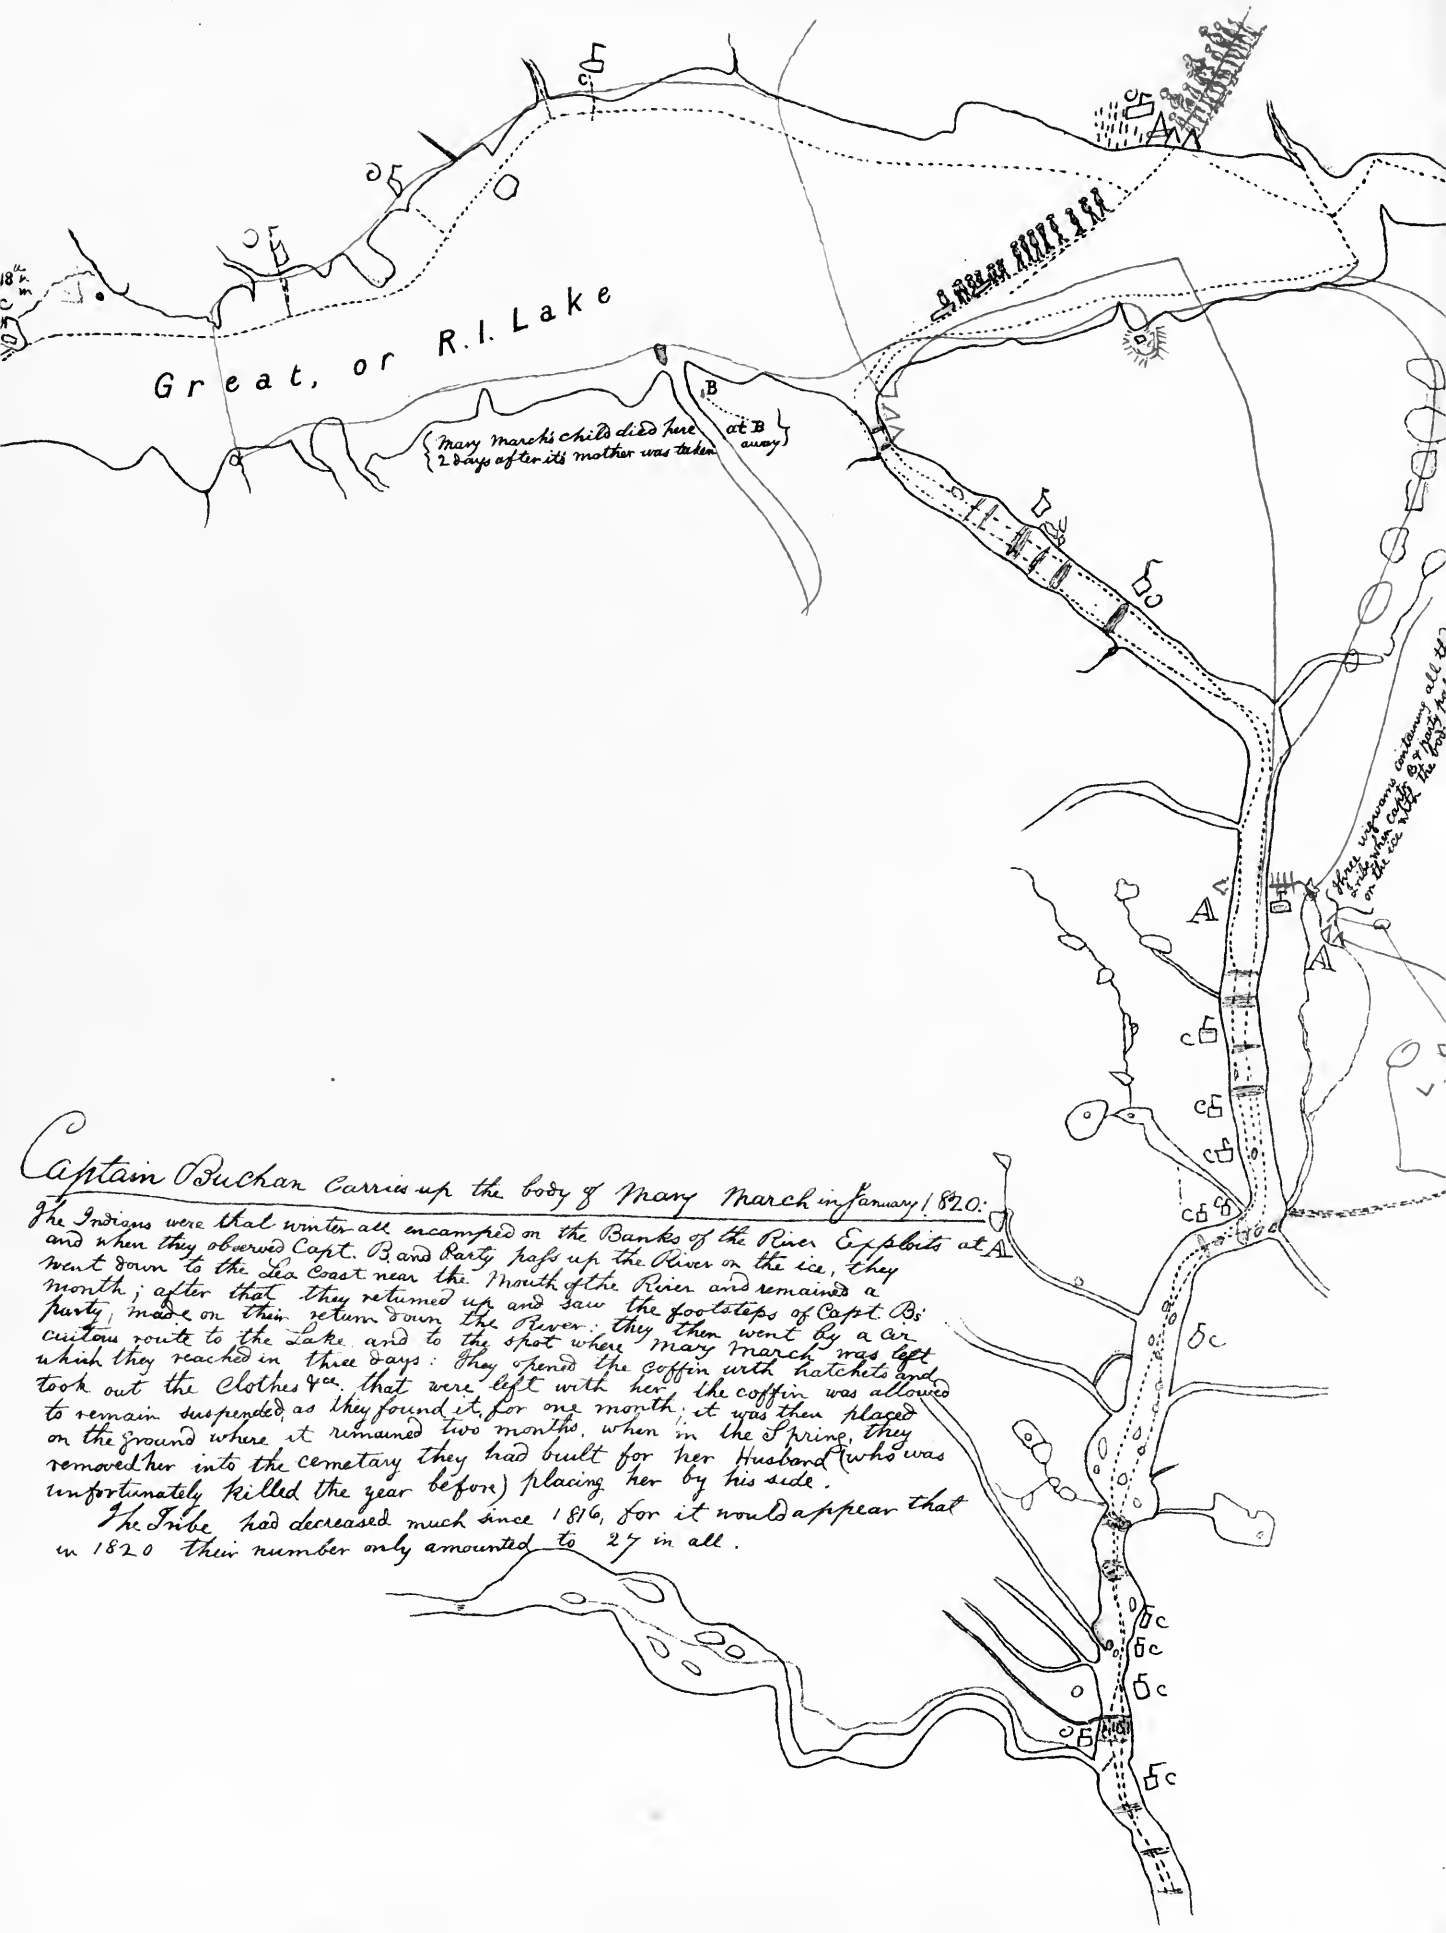 Great, or R.I. Lake
B
{Mary March's child died here at B}
{2 days after its mother was taken away}
A
Three wigwams containing all th
Tribe when Captn B & party pa
on the ice with the bod
A
A
Captain Buchan carries up the body of Mary March in January 1820:
The Indians were that winter all encamped on the Banks of the River Exploits at A
and when they observed Capt. B. and Party pass up the River on the ice, they
went down to the Sea Coast near the Mouth of the River and remained a
month; after that they returned up and saw the footsteps of Capt. Bs:
party, made on their return down the River: they then went by a cir
cuitous route to the Lake and to the spot where Mary March was left
which they reached in three days: They opened the coffin with hatchets and
took out the clothes &ce. that were left with her the coffin was allowed
to remain suspended, as they found it, for one month; it was then placed
on the ground where it remained two months, when in the Spring, they
removed her into the cemetary they had built for her Husband (who was
unfortunately killed the year before) placing her by his side.
The Tribe had decreased much since 1816, for it would appear that
in 1820 their number only amounted to 27 in all.